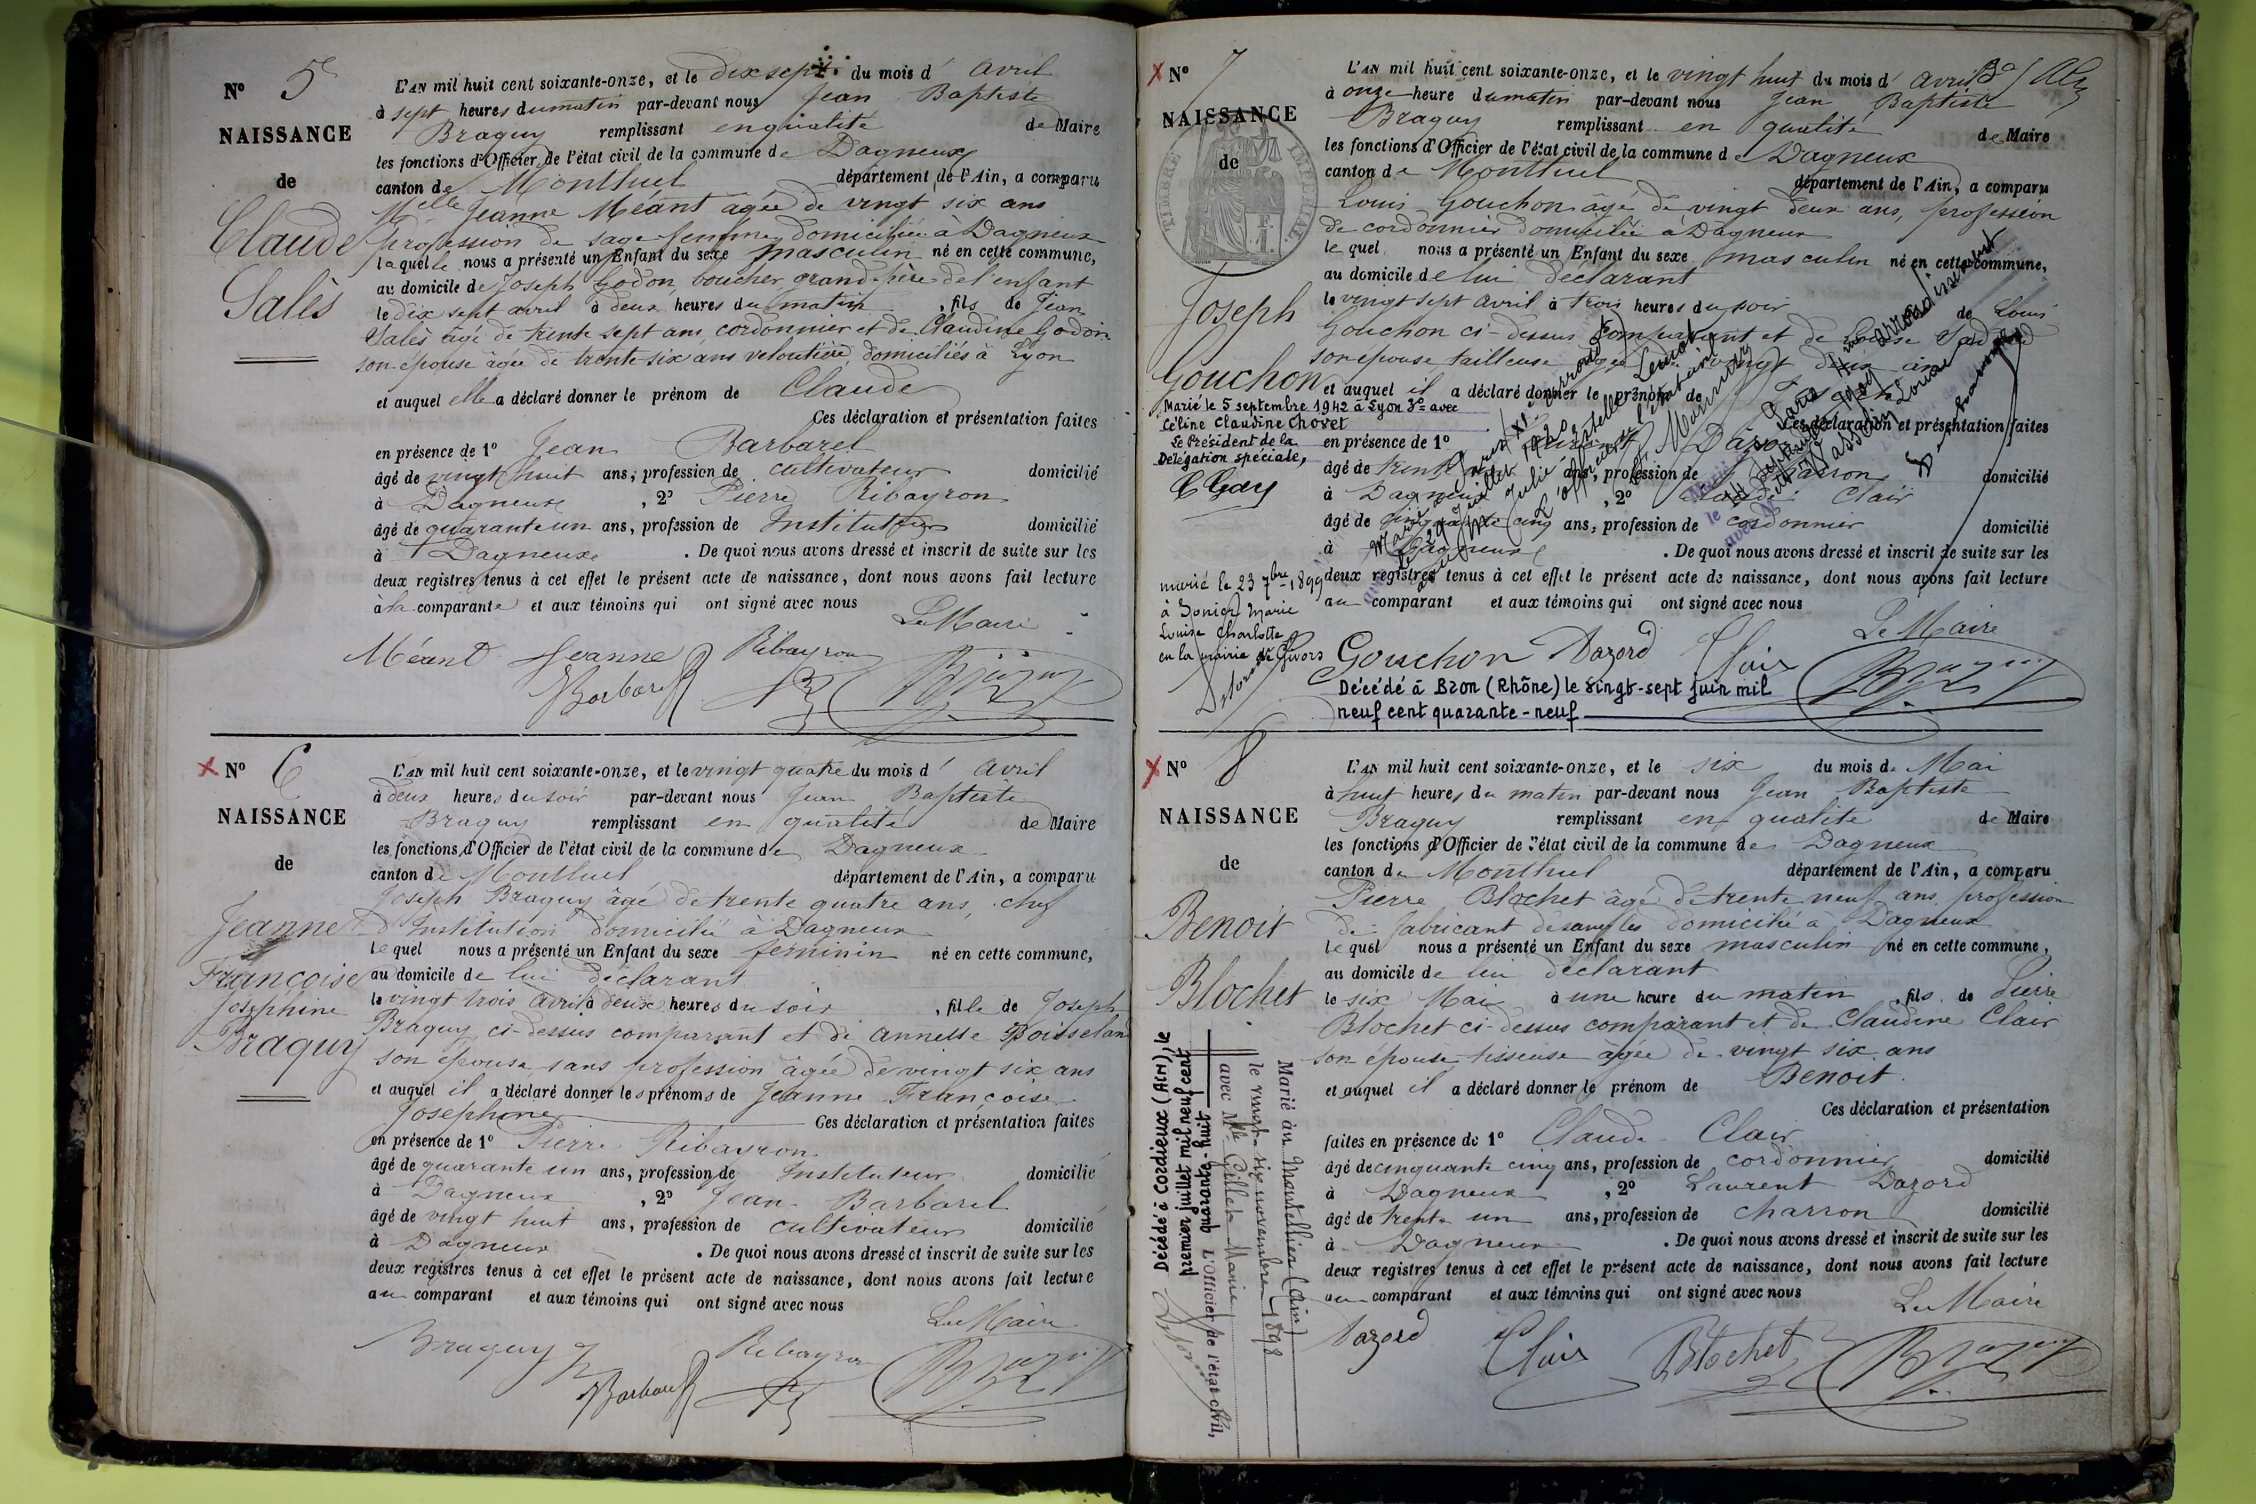 Nº 5
NAISSANCE
de
Claude
Salès
L'AN mil huit cent soixante-onze, et le dix sept du mois d' Avril
à sept heures du matin par-devant nous Jean Baptiste
Braguy remplissant en qualité de Maire
les fonctions d'Officier de l'état civil de la commune de Dagneux
canton de Montluel département de l'Ain, a comparu
Melle Jeanne Méant agée de vingt six ans
profession de sage femme domiciliée à Dagneux
laquelle nous a présenté un Enfant du sexe masculin né en cette commune,
au domicile de Joseph Godon boucher grand-père de l'enfant
le dix sept avril à deux heures du matin, fils de Jean
Salès âgé de trente sept ans, cordonnier et de Claudine Godon
son épouse âgée de trente six ans veloutière, domiciliés à Lyon
et auquel elle a déclaré donner le prénom de Claude
Ces déclaration et présentation faites
en présence de 1º Jean Barbarel
âgé de vingt huit ans, profession de cultivateur domicilié
à Dagneux, 2º Pierre Ribayron
âgé de quarante un ans, profession de Instituteur domicilié
à Dagneux. De quoi nous avons dressé et inscrit de suite sur les
deux registres tenus à cet effet le présent acte de naissance, dont nous avons fait lecture
à la comparante et aux témoins qui ont signé avec nous
Le Maire
Méant Jeanne Ribayron
Barbarel Braguy
Nº 6
NAISSANCE
de
Jeanne
Françoise
Joséphine
Braguy
L'AN mil huit cent soixante-onze, et le vingt quatre du mois d' Avril
à deux heures du soir par-devant nous Jean Baptiste
Braguy remplissant en qualité de Maire
les fonctions d'Officier de l'état civil de la commune de Dagneux
canton de Montluel département de l'Ain, a comparu
Joseph Braguy âgé de trente quatre ans, chef
d'Institution domicilié à Dagneux
lequel nous a présenté un Enfant du sexe féminin né en cette commune,
au domicile de lui déclarant
le vingt trois avril à deux heures du soir, fille de Joseph
Braguy ci-dessus comparant et de Annette
son épouse sans profession âgée de vingt six ans
et auquel il a déclaré donner les prénoms de Jeanne Françoise
Joséphine Ces déclaration et présentation faites
en présence de 1º Pierre Ribayron
âgé de quarante un ans, profession de Instituteur domicilié
à Dagneux, 2º Jean Barbarel
âgé de vingt huit ans, profession de cultivateur domicilié
à Dagneux. De quoi nous avons dressé et inscrit de suite sur les
deux registres tenus à cet effet le présent acte de naissance, dont nous avons fait lecture
au comparant et aux témoins qui ont signé avec nous
Le Maire
Braguy Ribayron
Barbarel Braguy
Nº 7
NAISSANCE
de
TIMBRE IMPERIAL
Joseph
Gouchon
Marié le 5 septembre 1942 à Lyon 3e avec
Céline Claudine Chovet
Le Président de la
Délégation spéciale,
C Gay
marié le 23 7bre 1899
à Marie
Louise Charlotte
en la mairie de Givors
L'AN mil huit cent soixante-onze, et le vingt huit du mois d' Avril
à onze heure du matin par-devant nous Jean Baptiste
Braguy remplissant en qualité de Maire
les fonctions d'Officier de l'état civil de la commune de Dagneux
canton de Montluel département de l'Ain, a comparu
Louis Gouchon âgé de vingt deux ans, profession
de cordonnier domicilié à Dagneux
lequel nous a présenté un Enfant du sexe masculin né en cette commune,
au domicile de lui déclarant
le vingt sept avril à trois heures du soir de Louis
Gouchon ci-dessus comparant et de Louise
son épouse tailleuse âgée de vingt deux ans
et auquel il a déclaré donner le prénom de Joseph
Ces déclaration et présentation faites
en présence de 1º Laurent Dazord
âgé de trente un ans, profession de charron domicilié
à Dagneux, 2º Claude Clair
âgé de cinquante cinq ans, profession de cordonnier domicilié
à Dagneux. De quoi nous avons dressé et inscrit de suite sur les
deux registres tenus à cet effet le présent acte de naissance, dont nous avons fait lecture
au comparant et aux témoins qui ont signé avec nous
Le Maire
Gouchon Dazord Clair Braguy
Décédé à Bron (Rhône) le vingt-sept juin mil
neuf cent quarante-neuf
Nº 8
NAISSANCE
de
Benoit
Blochet
Décédé à Cordieux (Ain), le
premier juillet mil neuf cent
quarante-huit
L'officier de l'état civil,
Marié au Montellier (Ain)
le vingt-six novembre 1898
avec Mlle Marie
L'AN mil huit cent soixante-onze, et le six du mois de Mai
à huit heures du matin par-devant nous Jean Baptiste
Braguy remplissant en qualité de Maire
les fonctions d'Officier de l'état civil de la commune de Dagneux
canton de Montluel département de l'Ain, a comparu
Pierre Blochet âgé de trente neuf ans profession
de fabricant domicilié à Dagneux
lequel nous a présenté un Enfant du sexe masculin né en cette commune,
au domicile de lui déclarant
le six Mai à une heure du matin, fils de Pierre
Blochet ci-dessus comparant et de Claudine Clair
son épouse tisseuse âgée de vingt six ans
et auquel il a déclaré donner le prénom de Benoit
Ces déclaration et présentation
faites en présence de 1º Claude Clair
âgé de cinquante cinq ans, profession de cordonnier domicilié
à Dagneux, 2º Laurent Dazord
âgé de trente un ans, profession de charron domicilié
à Dagneux. De quoi nous avons dressé et inscrit de suite sur les
deux registres tenus à cet effet le présent acte de naissance, dont nous avons fait lecture
au comparant et aux témoins qui ont signé avec nous
Le Maire
Dazord Clair Blochet Braguy